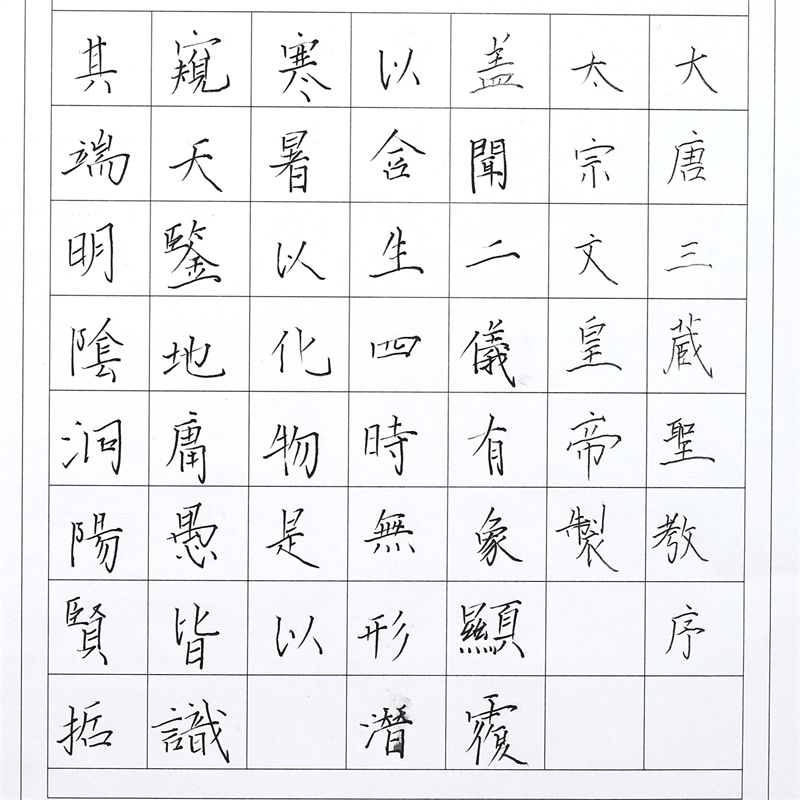 大唐三蔵聖教序
太宗文皇帝製
盖聞二儀有象顯覆
以含生四時無形潛
寒暑以化物是以
窺天鑒地庸愚皆識
其端明陰洞陽賢哲